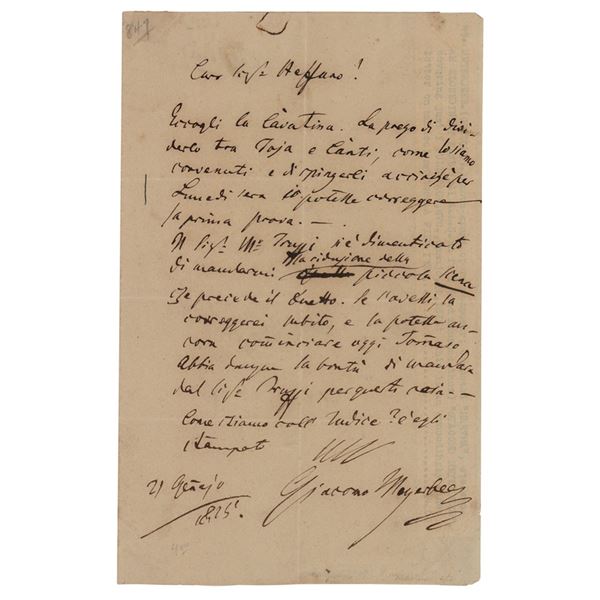 847
Caro Sigr Steffano!
Eccogli la Cavatina. La prego di divi-
derlo tra Toja e Canti, come lo siamo
convenuti e di spingerli acciochè per
Lunedi sera io potessi correggere
la prima prova. —
Il Sigr Mr Truppi si è dimenticato
di mandarmi la riduzione della piccola Scena
che precede il Duetto. Se l'avessi, la
correggerei subito, e la potessi an-
cora cominciare oggi Tomaso.
Abbia dunque la bontà di mandare
dal Sigr Truppi per questa cosa. —
Come stiamo coll' Indice? è egli
stampato
21 Genajo
1825.
Giacomo Meyerbeer